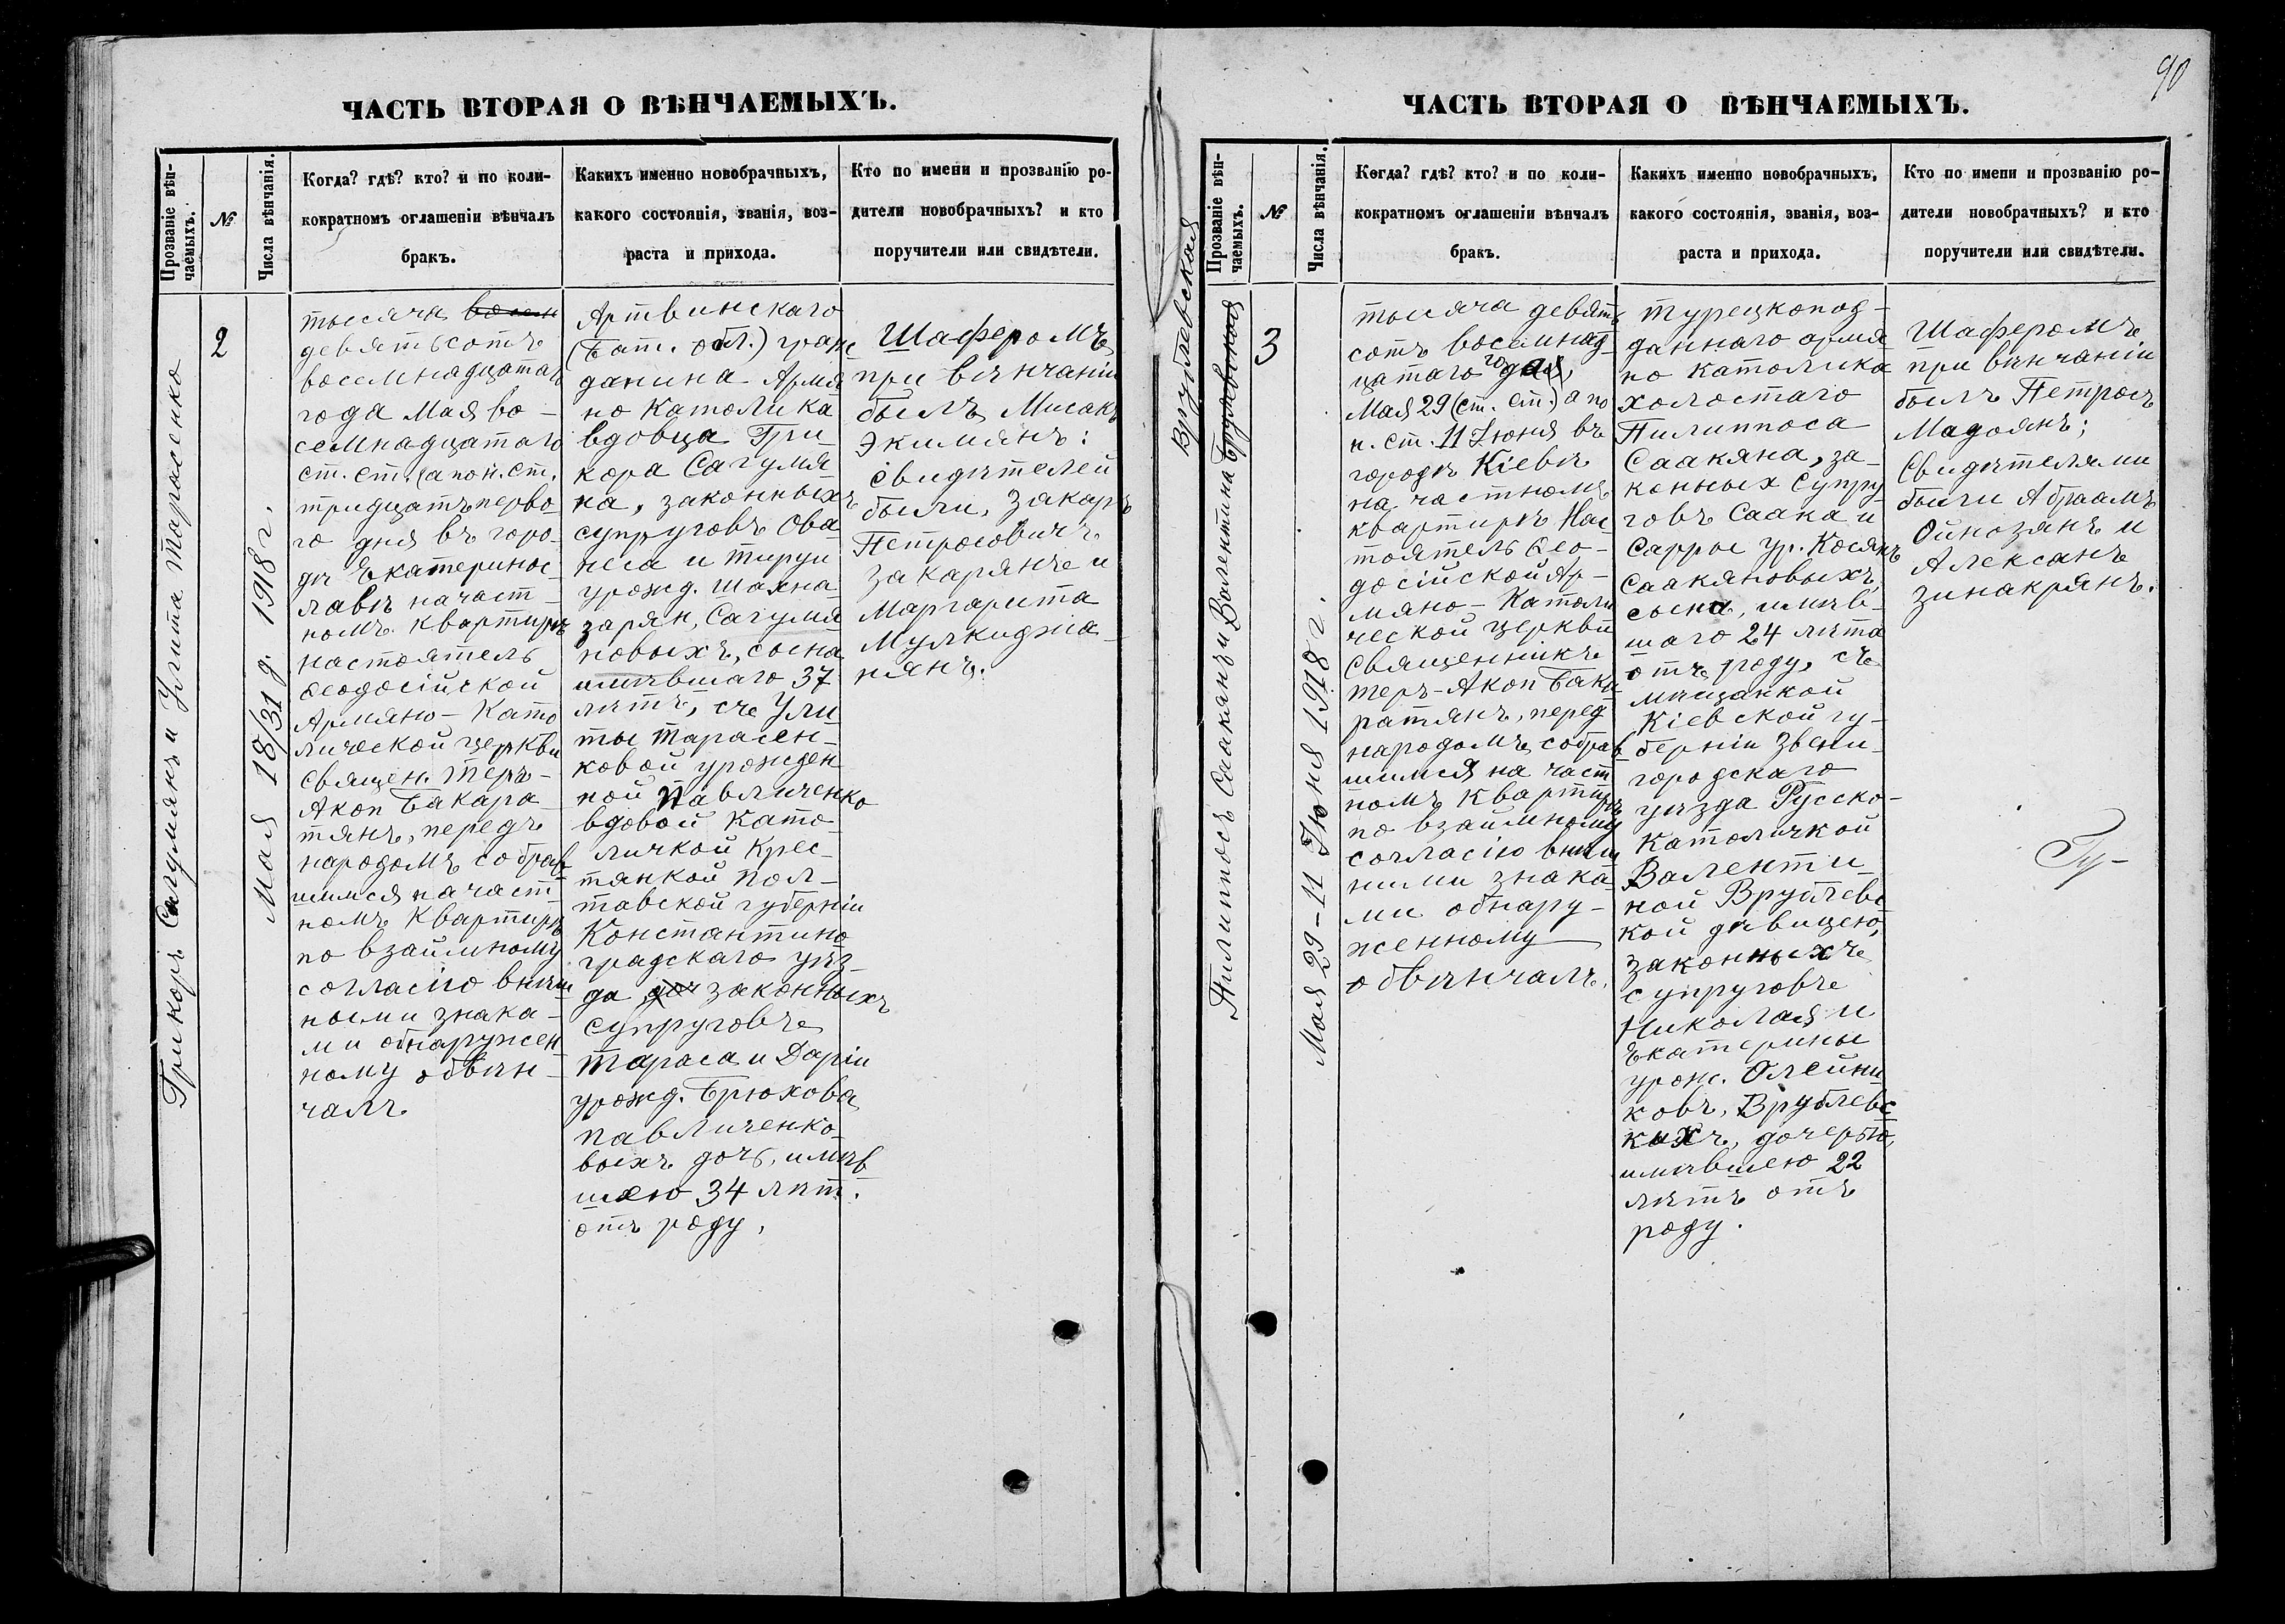 ЧАСТЬ ВТОРАЯ О ВѢНЧАЕМЫХЪ.
Прозваніе вѣн-
чаемыхъ.
№
Числа вѣнчанія.
Когда? гдѣ? кто? и по коли-
кократномъ оглашеніи вѣнчалъ
бракъ.
Какихъ именно новобрачныхъ,
какого состоянія, званія, воз-
раста и прихода.
Кто по имени и прозванію ро-
дители новобрачныхъ? и кто
поручители или свидѣтели.
Грикоръ Сагумянъ и Улита Тарасенко
2
Мая 18/31 д. 1918 г.
тысяча восем
девятьсотъ
восемнадцатаго
года Мая во-
семнадцатаго
ст. ст. (а по н. ст.
тридцать перво-
го дня въ горо-
дѣ Екатеринос-
лавѣ на част-
номъ квартирѣ
настоятель
Ѳеодосійской
Армяно-Като
лической церкви
Священ. Теръ-
Акоп Бакара
тянъ, передъ
народомъ собрав
шимся на част-
номъ квартирѣ
по взаимному
согласію внѣш
ными знака-
ми обнаружен
ному обвѣн-
чалъ
Артвинскаго
(Бат. обл.) граж
данина Армя
но Католика
вдовца Гри-
кора Сагумя
на, законныхъ
супруговъ Ова
неса и Тируи
урожд. Шахна
зарян, Сагумя
новыхъ, сына
имѣвшаго 37
лѣтъ, съ Ули
ты Тарасен-
ковой урожден
ной Павличенко
вдовой Като-
личкой Крес-
тянкой Пол-
тавской губерніи
Константино
градскаго уѣз-
да доч законныхъ
супруговъ
Тараса и Даріи
урожд. Брюхова
Павличенко-
выхъ дочь, имѣв
шею 34 лѣт.
отъ роду,
Шаферомъ
при вѣнчаніи
былъ Мисакъ
Экимянъ:
свидѣтелей
были, Закаръ
Петросовичъ
Закарянъ и
Маргарита
Мулкиджа-
нянъ.
90
ЧАСТЬ ВТОРАЯ О ВѢНЧАЕМЫХЪ.
Прозваніе вѣн-
чаемыхъ.
№
Числа вѣнчанія.
Когда? гдѣ? кто? и по коли-
кократномъ оглашеніи вѣнчалъ
бракъ.
Какихъ именно новобрачныхъ,
какого состоянія, званія, воз-
раста и прихода.
Кто по имени и прозванію ро-
дители новобрачныхъ? и кто
поручители или свидѣтели.
Врублевская
Пилиппосъ Саакянъ и Валентина Брулевокая
3
Мая 29-11 Іюня 1918 г.
тысяча девять
сотъ восемнад-
цатаго года,
Мая 29 (ст. ст.) а по
н. ст. 11 Іюня въ
городѣ Кіевѣ
на частномъ
квартирѣ Нас
тоятель Ѳео-
досійской Ар-
мяно-Католи
ческой церкви
Священникъ
Теръ-Акоп Бака
ратянъ, перед
народомъ собрав
шимся на част
номъ квартирѣ
по взаимному
согласію внѣш
ними знака
ми обнару-
женному
обвѣнчалъ.
турецкопод-
даннаго армя
но католика
холостаго
Пилиппоса
Саакяна, за-
конных супру
говъ Саака и
Сарры ур. Косянъ
Саакяновыхъ,
сына, имѣв-
шаго 24 лѣта
отъ роду, съ
мѣщанкой
Кіевской гу-
берніи Звени-
городскаго
уѣзда Русско-
Католичкой
Валенти-
ной Врублевс
кой дѣвицею,
законныхъ
супруговъ
Николая и
Екатерины
урож. Олейни
ковъ, Врублевс
кихъ, дочерью,
имѣвшею 22
лѣтъ отъ
роду.
Шаферомъ
при вѣнчаніи
былъ Петросъ
Мадоянъ;
Свидѣтелями
были Абраамъ
Ойнозянъ и
Алексанъ
Зинакрянъ.